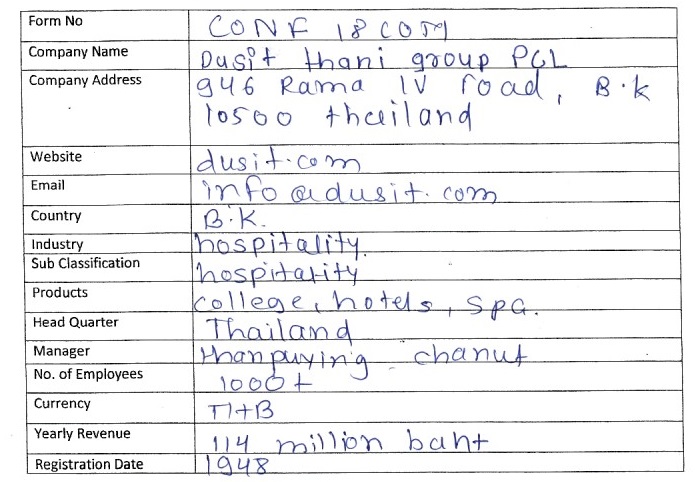 Form No CONF 18 COM
Company Name Dusit thani group PCL
Company Address 946 Rama IV road, B.k
10500 thailand
Website dusit.com
Email info@dusit.com
Country B.K.
Industry hospitality.
Sub Classification hospitality
Products college, hotels, spa.
Head Quarter Thailand
Manager thanpuying chanut
No. of Employees 1000+
Currency THB
Yearly Revenue 114 million baht
Registration Date 1948